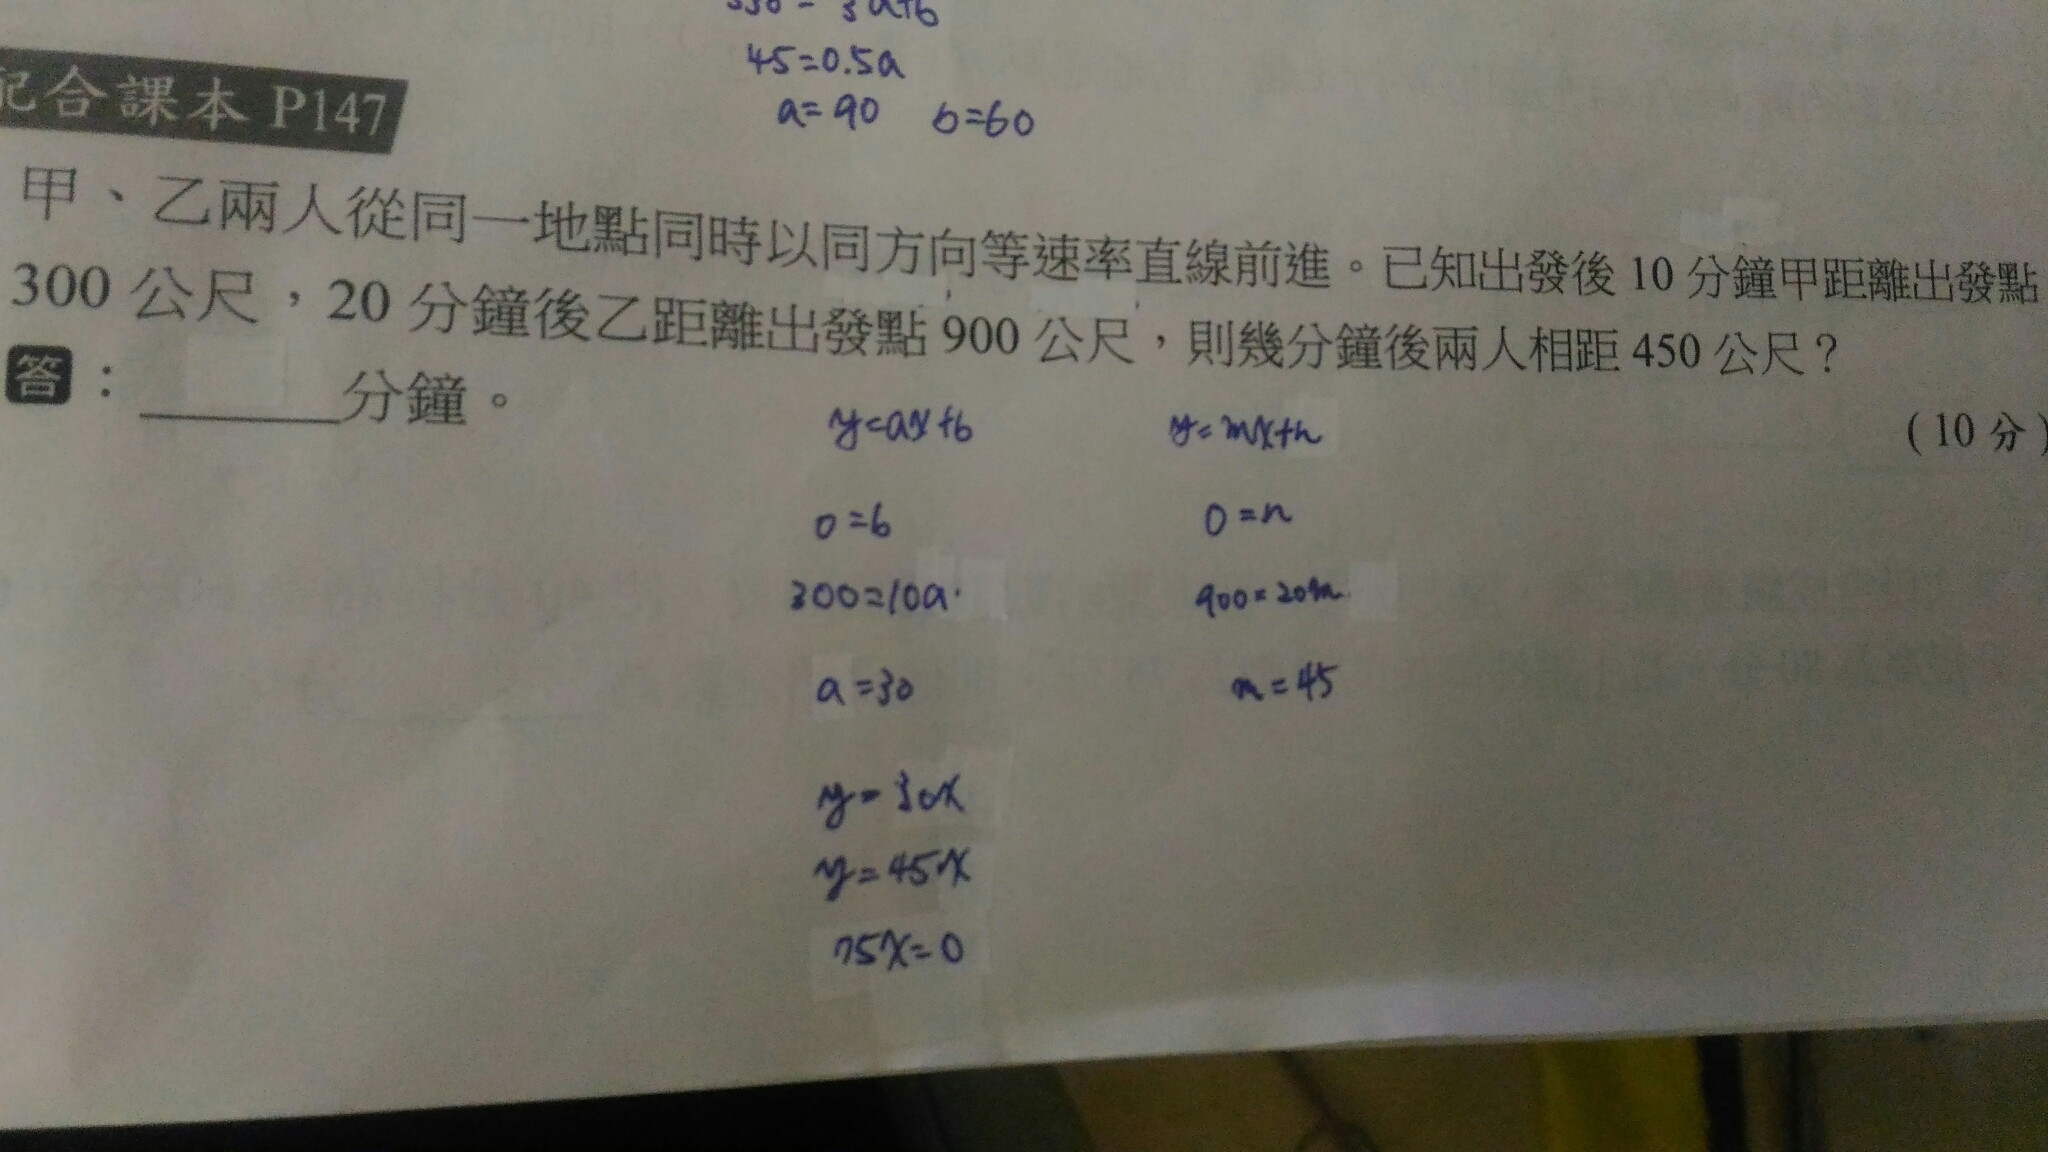 = 3a+b
45=0.5a
a=90 b=60
配合課本 P147
甲、乙兩人從同一地點同時以同方向等速率直線前進。已知出發後 10 分鐘甲距離出發點
300 公尺,20 分鐘後乙距離出發點 900 公尺,則幾分鐘後兩人相距 450 公尺?
答:______分鐘。
(10 分)
y=ax+b y=mx+n
0=b 0=n
300=10a 900=20m
a=30 m=45
y=30x
y=45x
75x=0